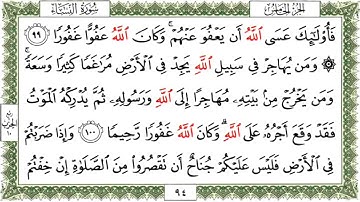 الجزء الخامس
سورة النساء
فَأُولَٰئِكَ عَسَى اللَّهُ أَن يَعْفُوَ عَنْهُمْ ۚ وَكَانَ اللَّهُ عَفُوًّا غَفُورًا ٩٩
۞ وَمَن يُهَاجِرْ فِي سَبِيلِ اللَّهِ يَجِدْ فِي الْأَرْضِ مُرَاغَمًا كَثِيرًا وَسَعَةً ۚ
وَمَن يَخْرُجْ مِن بَيْتِهِ مُهَاجِرًا إِلَى اللَّهِ وَرَسُولِهِ ثُمَّ يُدْرِكْهُ الْمَوْتُ
فَقَدْ وَقَعَ أَجْرُهُ عَلَى اللَّهِ ۗ وَكَانَ اللَّهُ غَفُورًا رَّحِيمًا ١٠٠ وَإِذَا ضَرَبْتُمْ
فِي الْأَرْضِ فَلَيْسَ عَلَيْكُمْ جُنَاحٌ أَن تَقْصُرُوا مِنَ الصَّلَاةِ إِنْ خِفْتُمْ
٩٤